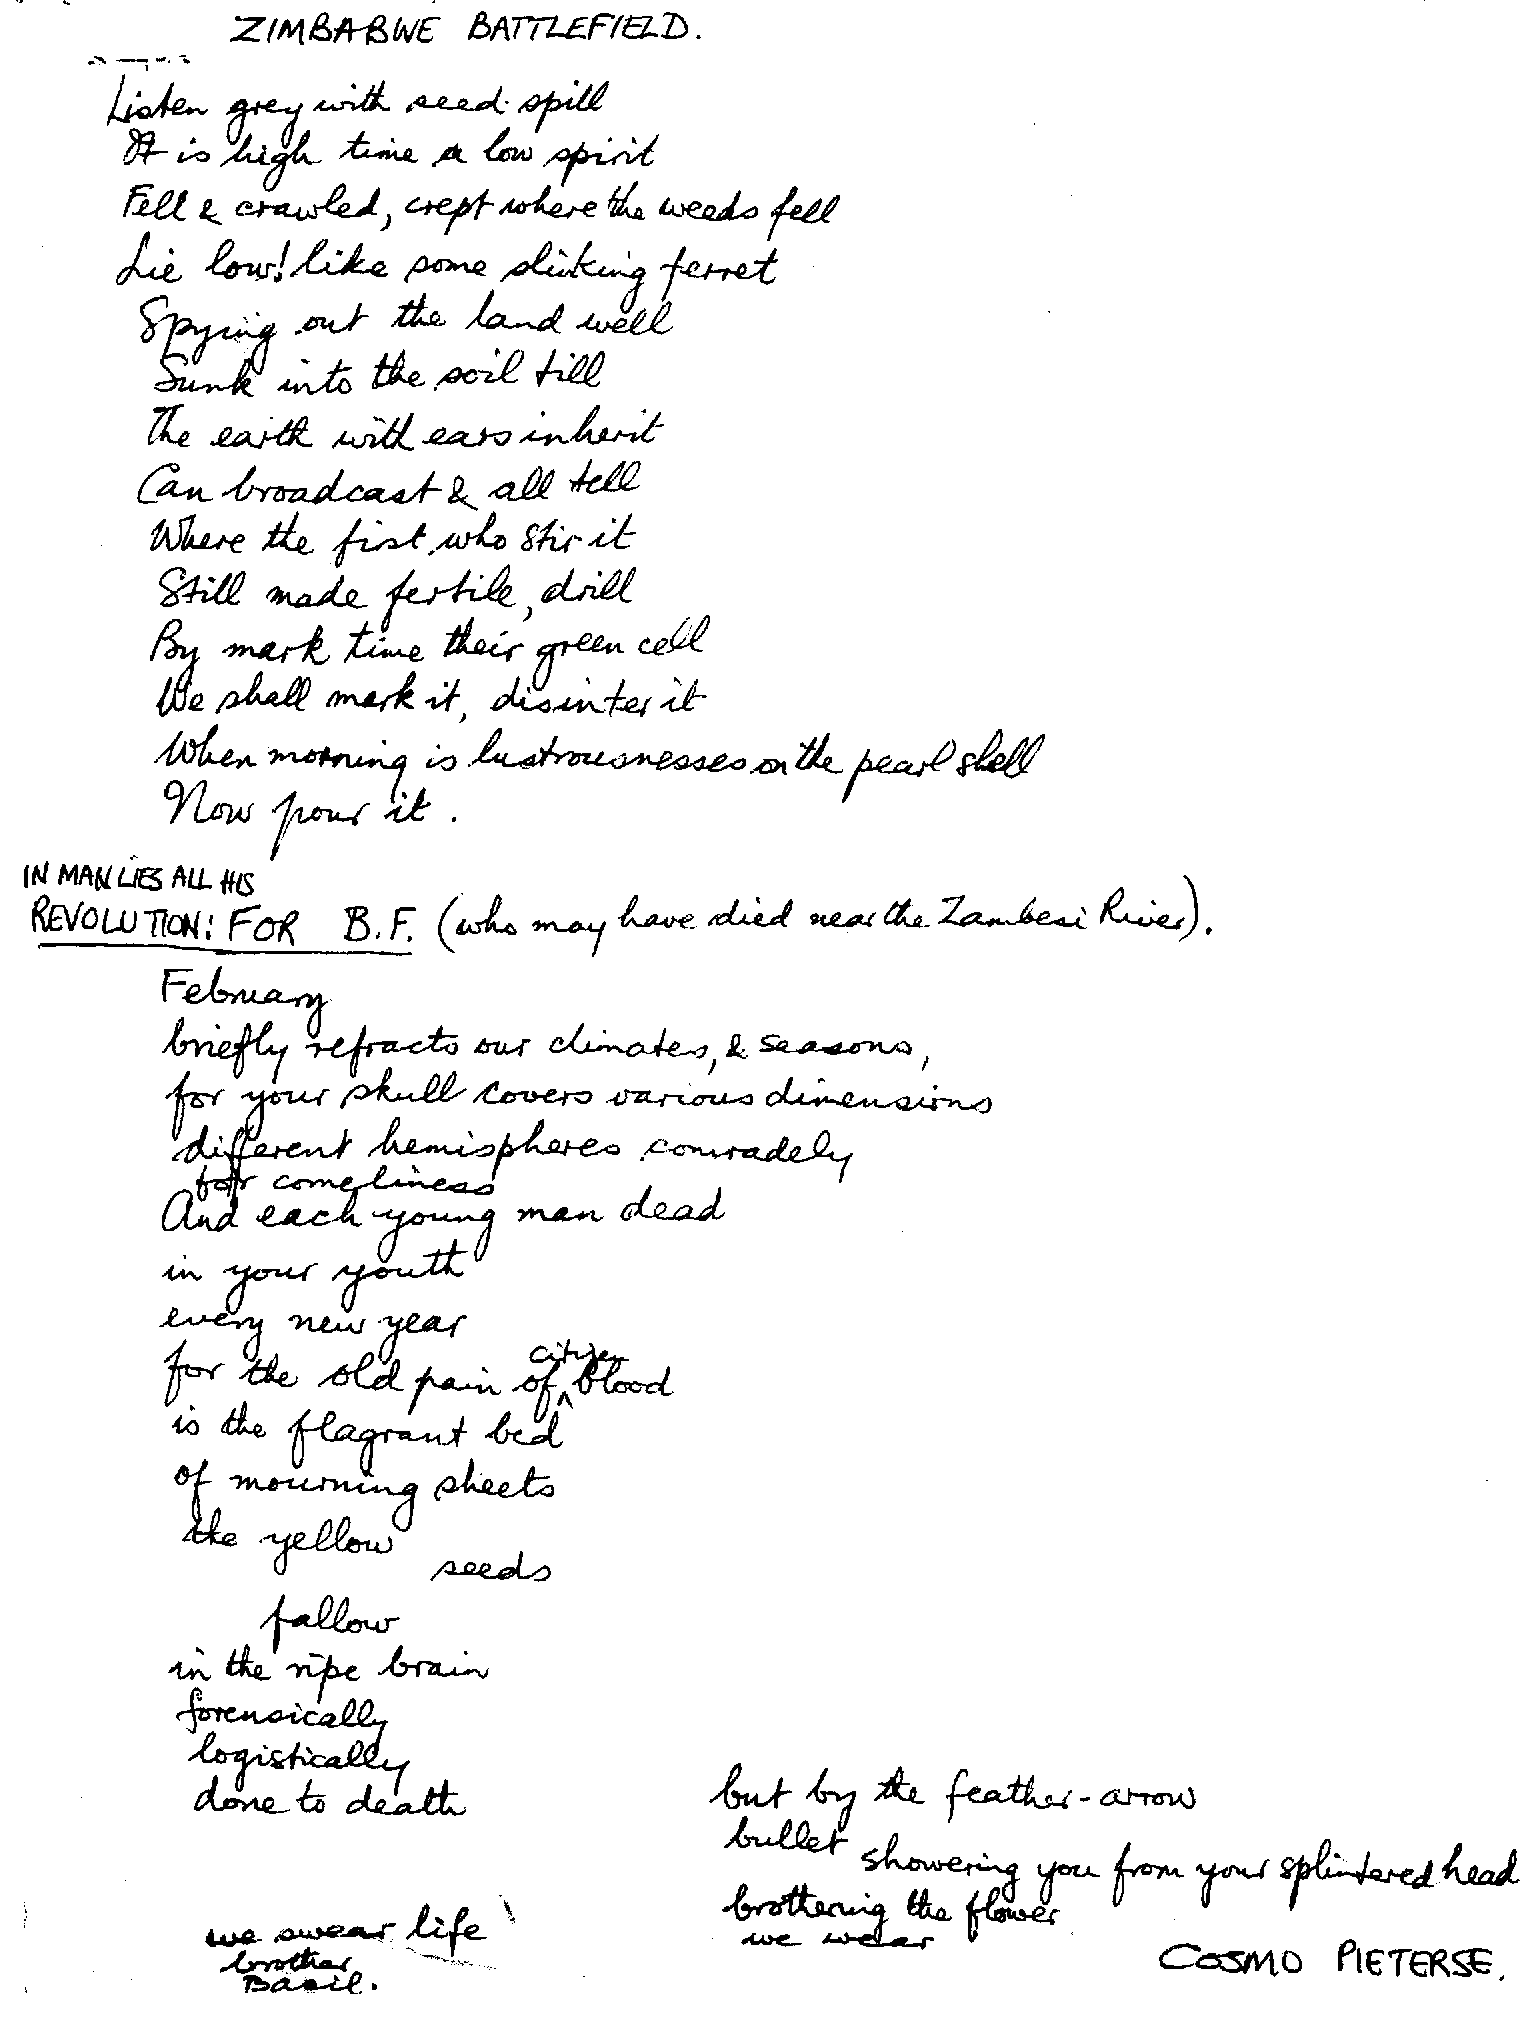 ZIMBABWE BATTLEFIELD.
Listen grey with seed spill
It is high time a low spirit
Fell & crawled, crept where the weeds fell
Lie low! like some slinking ferret
Spying out the land well
Sunk into the soil till
The earth with ears inherit
Can broadcast & all tell
Where the first who stir it
Still made fertile, drill
By mark time their green cell
We shall mark it, disinter it
When morning is lustrousnesses on the pearl shell
Now pour it.
IN MAN LIES ALL HIS
REVOLUTION: FOR B.F. (who may have died near the Zambesi River).
February
briefly refracts our climates, & seasons,
for your skull covers various dimensions
different hemispheres comradely
for comeliness
And each young man dead
in your youth
every new year
for the old pain of citizen blood
is the flagrant bed
of mourning sheets
the yellow
seeds
fallow
in the ripe brain
forensically
logistically
done to death
but by the feather-arrow
bullet
showering you from your splintered head
brothering the flower
we wear
we swear life
brother
Basil.
COSMO PIETERSE.